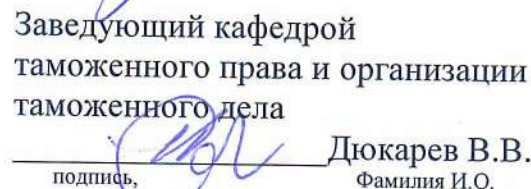 Заведующий кафедрой
таможенного права и организации
таможенного дела
Дюкарев В.В.
подпись, Фамилия И.О.